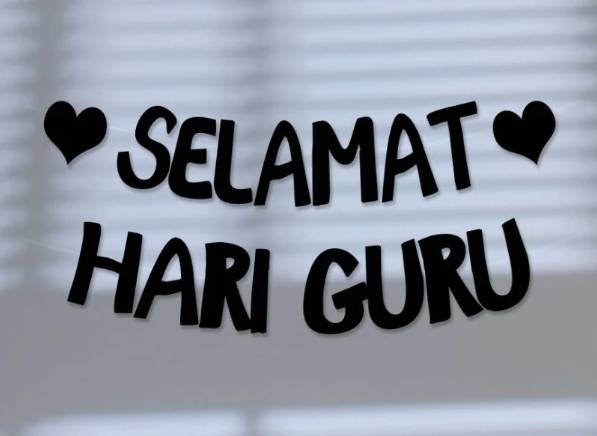 SELAMAT
HARI GURU